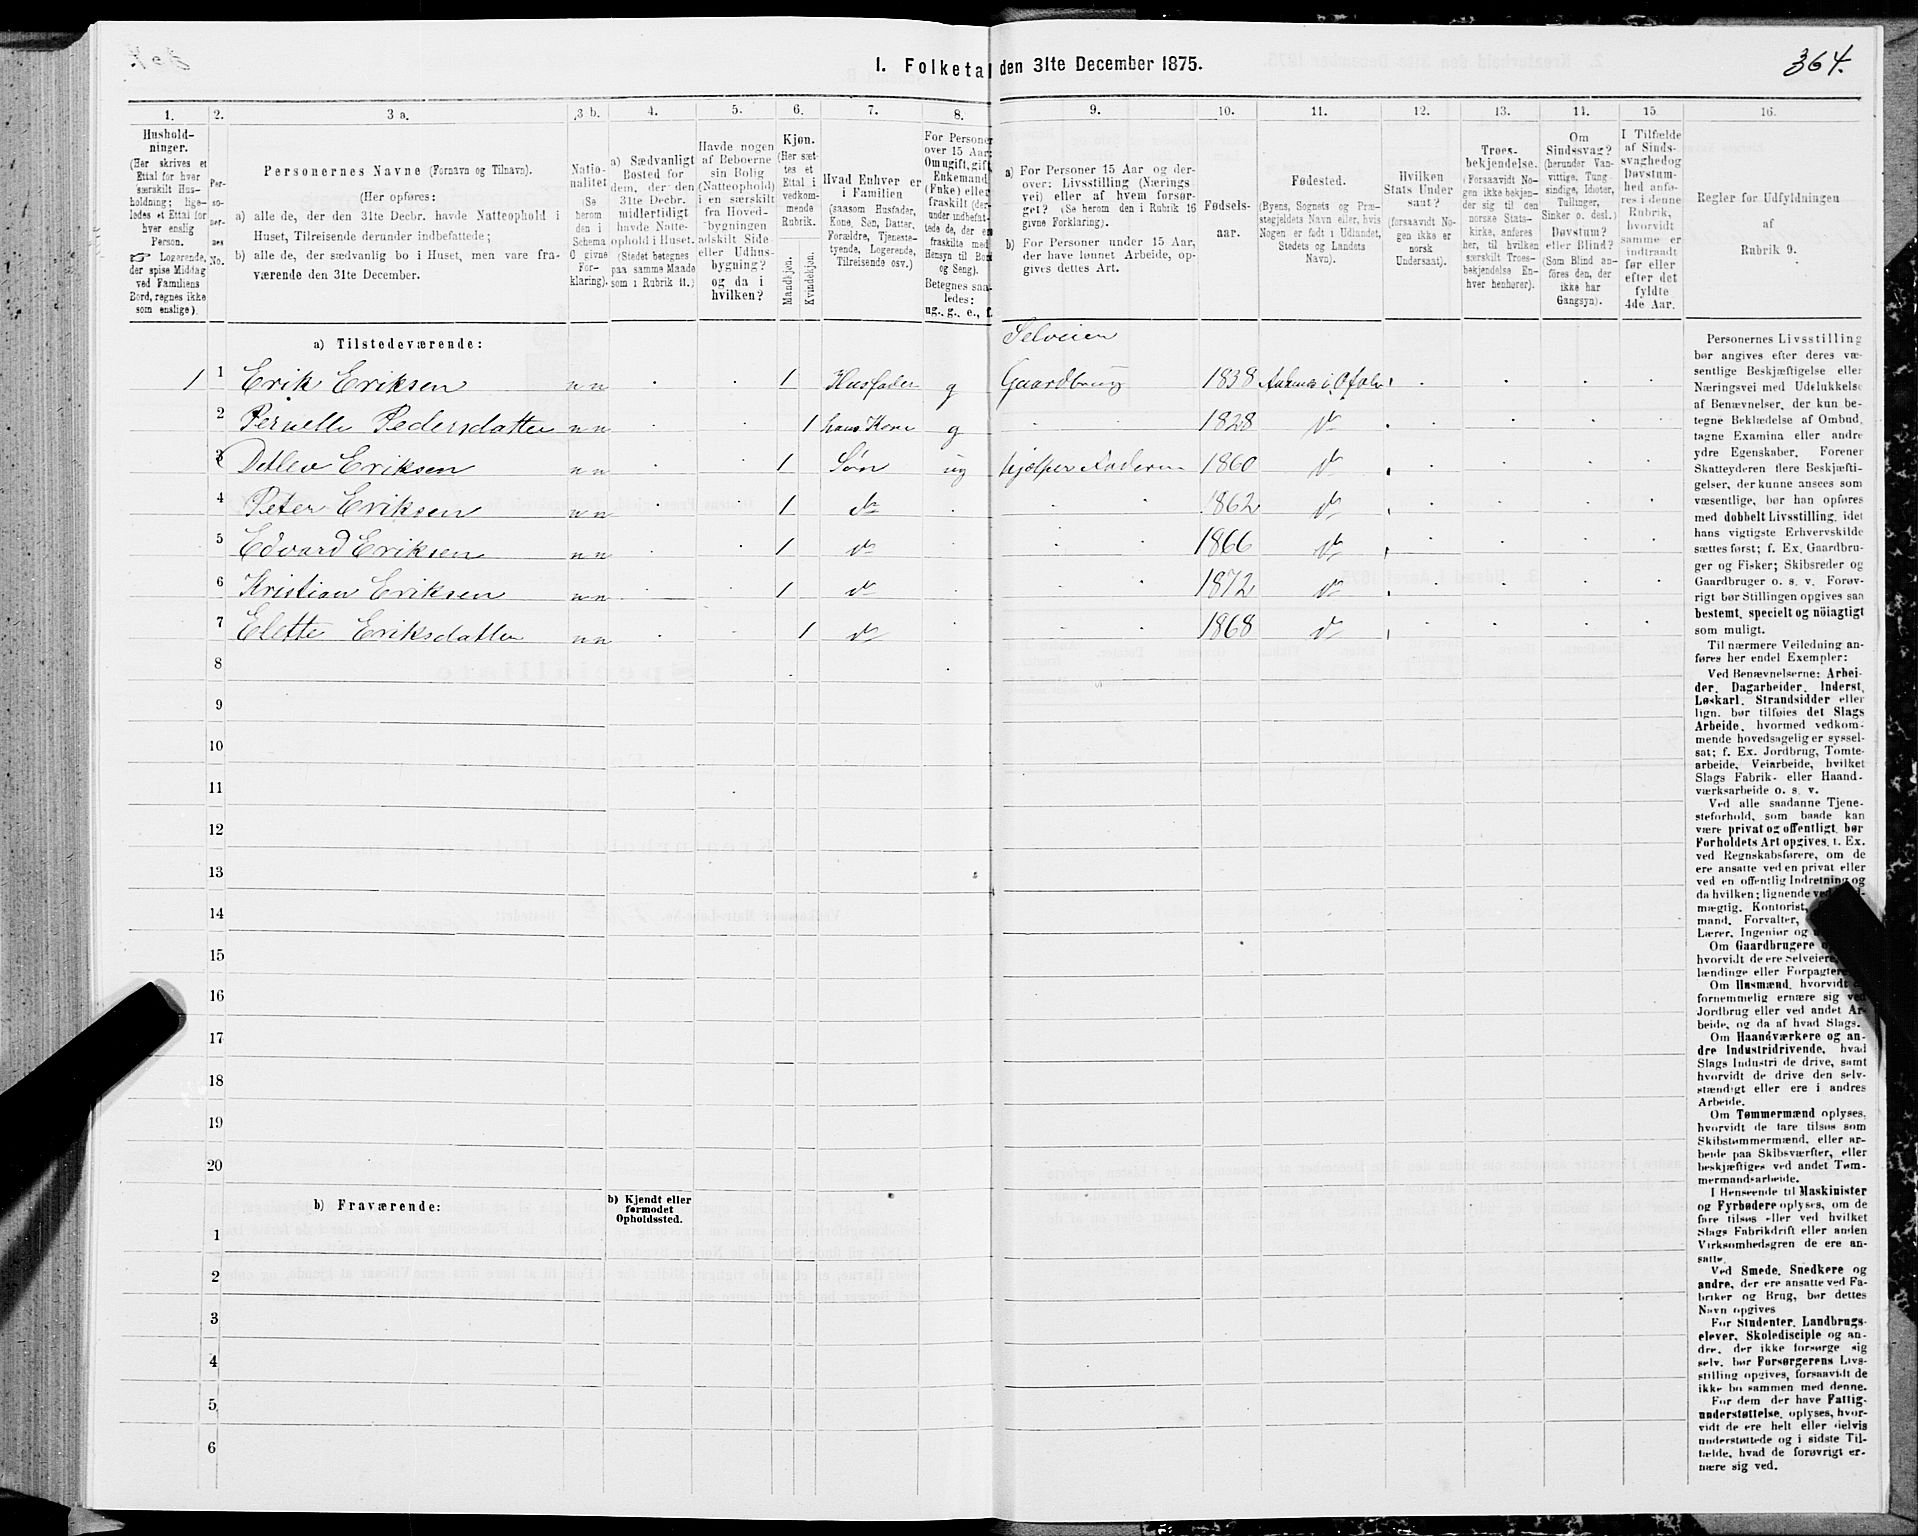 364.
I. Folketal den 31te December 1875.
1. 2. 3 a. 3 b. 4. 5. 6. 7. 8. 9. 10. 11. 12. 13. 14. 15. 16.
Hushold-
ninger.
(Her skrives et
Ettal for hver
særskilt Hus-
holdning; lige-
ledes et Ettal for
hver enslig
Person.
Logerende,
der spise Middag
ved Familiens
Bord, regnes ikke
som enslige).
Per-
so-
ner-
nes
No.
Personernes Navne (Fornavn og Tilnavn).
(Her opføres:
a) alle de, der den 31te Decbr. havde Natteophold i
Huset, Tilreisende derunder indbefattede;
b) alle de, der sædvanlig bo i Huset, men vare fra-
værende den 31te December.
Natio-
nalitet
(Se
herom
den i
Schema
C givne
For-
klaring).
a) Sædvanligt
Bosted for
dem, der den
31te Decbr.
midlertidigt
havde Natte-
ophold i Huset.
(Stedet betegnes
paa samme Maade
som i Rubrik 11.)
Havde nogen
af Beboerne
sin Bolig
(Natteophold)
i en særskilt
fra Hoved-
bygningen
adskilt Side-
eller Udhus-
bygning?
og da i
hvilken?
Kjøn.
(Her sæt-
tes et
Ettal i
vedkom-
mende
Rubrik.
Mandkjøn.
Kvindekjøn.
Hvad Enhver er
i Familien
(saasom Husfader,
Kone, Søn, Datter,
Forældre, Tjeneste-
tyende, Logerende,
Tilreisende osv.)
For Personer
over 15 Aar:
Om ugift, gift,
Enkemand
(Enke) eller
fraskilt (der-
under indbefat-
tede de, der ere
fraskilte med
Hensyn til Bord
og Seng).
Betegnes saa-
ledes:
ug., g., e., f.
a) For Personer 15 Aar og der-
over: Livsstilling (Nærings-
vei) eller af hvem forsør-
get? (Se herom den i Rubrik 16
givne Forklaring).
b) For Personer under 15 Aar,
der have lønnet Arbeide, op-
gives dettes Art.
Fødsels-
aar.
Fødested.
(Byens, Sognets og Præ-
stegjeldets Navn eller, hvis
Nogen er født i Udlandet,
Stedets og Landets
Navn).
Hvilken
Stats Under
saat?
(forsaavidt No-
gen ikke er
norsk
Undersaat).
Troes-
bekjendelse.
(Forsaavidt No-
gen ikke bekjen-
der sig til den
norske Stats-
kirke, anføres
her, til hvilken
særskilt Troes-
bekjendelse En-
hver henhører).
Om
Sindssvag?
(herunder Van-
vittige, Tung-
sindige, Idioter,
Tullinger,
Sinker o. desl.)
Døvstum?
eller Blind?
(Som Blind an-
føres den, der
ikke har
Gangsyn).
I Tilfælde
af Sinds-
svaghed og
Døvstum-
hed anfø-
res i denne
Rubrik,
hvorvidt
samme er
indtraadt
før eller
efter det
fyldte
4de Aar.
Regler for Udfyldningen
af
Rubrik 9.
a) Tilstedeværende:
Selveien
1 1 Erik Eriksen nn 1 Husfader g Gaardbrug 1838
2 Pernelle Pedersdatter nn 1 hans Kone g 1828 do
3 Detlev Eriksen nn 1 Søn ug hjelper Faderen 1860 do
4 Peter Eriksen nn 1 do 1862 do
5 Edvard Eriksen nn 1 do 1866 do
6 Kristian Eriksen nn 1 do 1872 do
7 Elette Eriksdatter nn 1 do 1868 do
8
9
10
11
12
13
14
15
16
17
18
19
20
b) Fraværende:
b) Kjendt eller
formodet
Opholdssted.
1
2
3
4
5
6
Personernes Livsstilling
bør angives efter deres væ-
sentlige Beskjæftigelse eller
Næringsvei med Udelukkelse
af Benævnelser, der kun be-
tegne Beklædelse af Ombud,
tagne Examina eller andre
ydre Egenskaber. Forener
Skatteyderen flere Beskjæfti-
gelser, der kunne ansees som
væsentlige, bør han opføres
med dobbelt Livsstilling, idet
hans vigtigste Erhvervskilde
sættes først; f. Ex. Gaardbru-
ger og Fisker; Skibsreder og
Gaardbruger o. s. v. Forøv-
rigt bør Stillingen opgives saa
bestemt, specielt og nöiagtigt
som muligt.
Til nærmere Veiledning an-
føres her endel Exempler:
Ved Benævnelserne: Arbei-
der, Dagarbeider, Inderst,
Løskarl, Strandsidder eller
lign. bør tilføies det Slags
Arbeide, hvormed vedkom-
mende hovedsagelig er syssel-
sat; f. Ex. Jordbrug, Tomte-
arbeide, Veiarbeide, hvilket
Slags Fabrik- eller Haand-
værksarbeide o. s. v.
Ved alle saadanne Tjene-
steforhold, som baade kan
være privat og offentligt, bør
Forholdets Art opgives, t. Ex.
ved Regnskabsførere, om de
ere ansatte ved en privat eller
ved en offentlig Indretning og
da hvilken; lignende ved
mægtig, Kontorist,
mand, Forvalter,
Lærer, Ingeniør og
Om Gaardbrugere
hvorvidt de ere Selveiere,
lændinge eller Forpagtere.
Om Husmænd, hvorvidt
fornemmelig ernære sig ved
Jordbrug eller ved andet Ar-
beide, og da af hvad Slags.
Om Haandværkere og an-
dre Industridrivende, hvad
Slags Industri de drive, samt
hvorvidt de drive den selv-
stændigt eller ere i andres
Arbeide.
Om Tømmermænd oplyses,
hvorvidt de fare tilsøs som
Skibstømmermænd, eller ar-
beide paa Skibsværfter, eller
beskjæftiges ved andet Tøm-
mermandsarbeide.
I Henseende til Maskinister
og Fyrbødere oplyses, om de
fare tilsøs eller ved hvilket
Slags Fabrikdrift eller anden
Virksomhedsgren de ere an-
satte.
Ved Smede, Snedkere og
andre, der ere ansatte ved Fa-
briker og Brug, bør dettes
Navn opgives
For Studenter, Landbrugs-
elever, Skoledisciple og an-
dre, der ikke forsørge sig
selv, bør Forsørgerens Livs-
stilling opgives, forsaavidt de
ikke bo sammen med denne.
For dem der have Fattig-
understøttelse, oplyses, hvor-
vidt de ere helt eller delvis
understøttede og i sidste Til-
fælde, hvad de forøvrigt er-
nære sig ved.